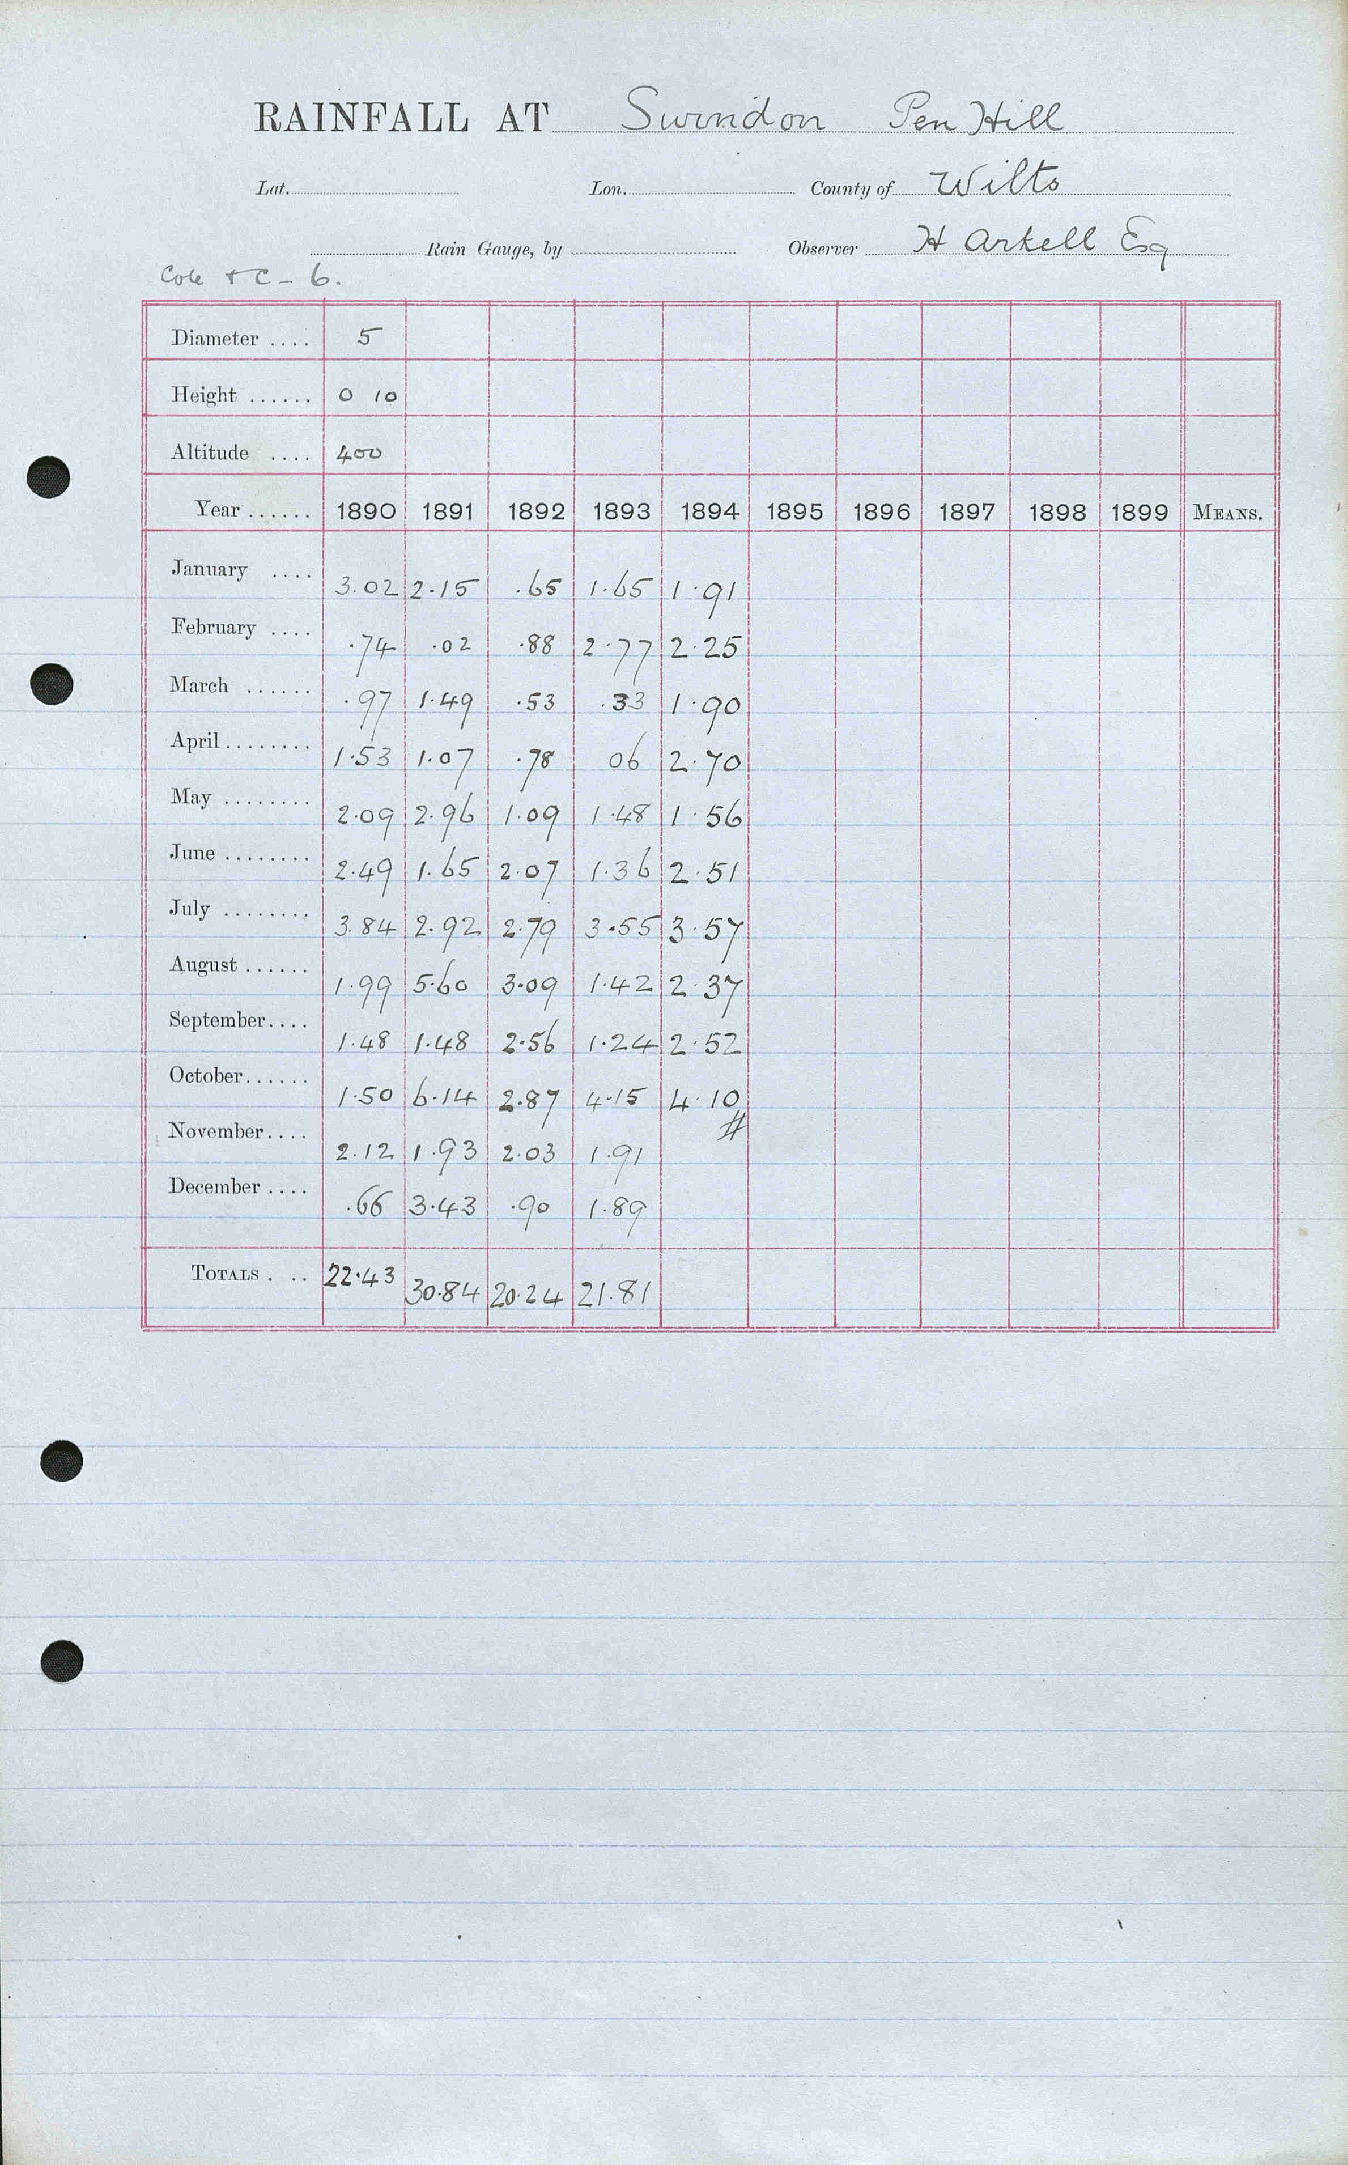 RAINFALL AT Swindon Pen Hill
Lat. Lon. County of Wilts
Rain Gauge, by Observer H Arkell Esq
Diameter .... 5
Height ...... 0 10
Altitude .... 400
Year ...... 1890 1891 1892 1893 1894 1895 1896 1897 1898 1899 MEANS.
January .... 3.02 2.15 .65 1.65 1.91
February .... .74 .02 .88 2.77 2.25
March ...... .97 1.49 .53 .33 1.90
April ........ 1.53 1.07 .78 06 2.70
May ........ 2.09 2.96 1.09 1.48 1.56
June ........ 2.49 1.65 2.07 1.36 2.51
July ........ 3.84 2.92 2.79 3.55 3.57
August ...... 1.99 5.60 3.09 1.42 2.37
September.... 1.48 1.48 2.56 1.24 2.52
October...... 1.50 6.14 2.87 4.15 4.10
#
November.... 2.12 1.93 2.03 1.91
December .... .66 3.43 .90 1.89
TOTALS . .. 22.43 30.84 20.24 21.81